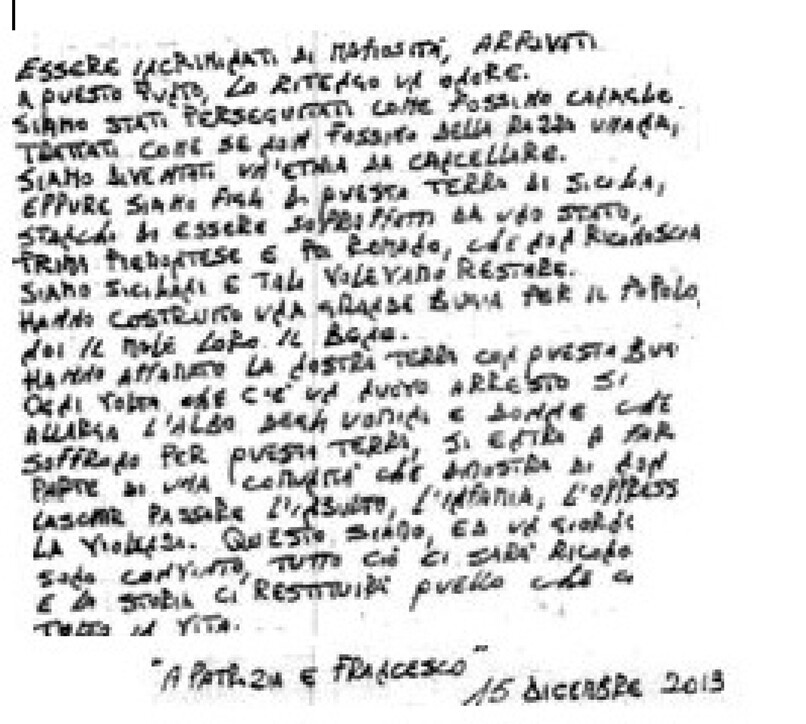 ESSERE INCRIMINATI DI MAFIOSITÀ, ARRIVATI
A QUESTO PUNTO, LO RITENGO UN ONORE.
SIAMO STATI PERSEGUITATI COME FOSSIMO CANAGLIE
TRATTATI COME SE NON FOSSIMO DELLA RAZZA UMANA,
SIAMO DIVENTATI UN'ETNIA DA CANCELLARE.
EPPURE SIAMO FIGLI DI QUESTA TERRA DI SICILIA,
STANCHI DI ESSERE SOPRAFFATTI DA UNO STATO,
PRIMA PIEMONTESE E POI ROMANO, CHE NON RICONOSCIA
SIAMO SICILIANI E TALI VOLEVAMO RESTARE.
HANNO COSTRUITO UNA GRANDE BUGIA PER IL POPOLO,
NOI IL MALE LORO IL BENE.
HANNO AFFAMATO LA NOSTRA TERRA CON QUESTA BUG
OGNI VOLTA CHE C'È UN NUOVO ARRESTO SI
ALLARGA L'ALBO DEGLI UOMINI E DONNE CHE
SOFFRONO PER QUESTA TERRA, SI ENTRA A FAR
PARTE DI UNA COMUNITÀ CHE DIMOSTRA DI NON
LASCIAR PASSARE L'INSULTO, L'INFAMIA, L'OPPRESS
LA VIOLENZA. QUESTO SIAMO, ED UN GIORNO
SONO CONVINTO, TUTTO CIÒ CI SARÀ RICONO
E LA STORIA CI RESTITUIRÀ QUELLO CHE CI
IN VITA.
"A PATRIZIA E FRANCESCO"
15 DICEMBRE 2013